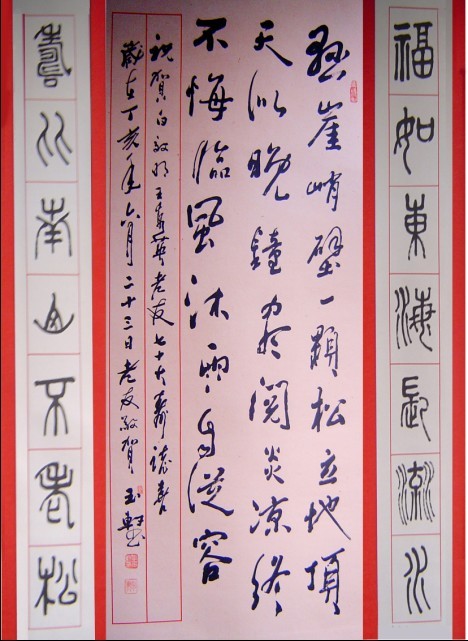 福如東海長流水
悬崖峭壁一顆松立地頂
天似晚鐘尽閱炎凉終
不悔臨風沐雨自從容
祝賀白王老友七十大壽誌喜
歲在丁亥年六月二十三日老友敬賀 玉軒書
壽比南山不老松